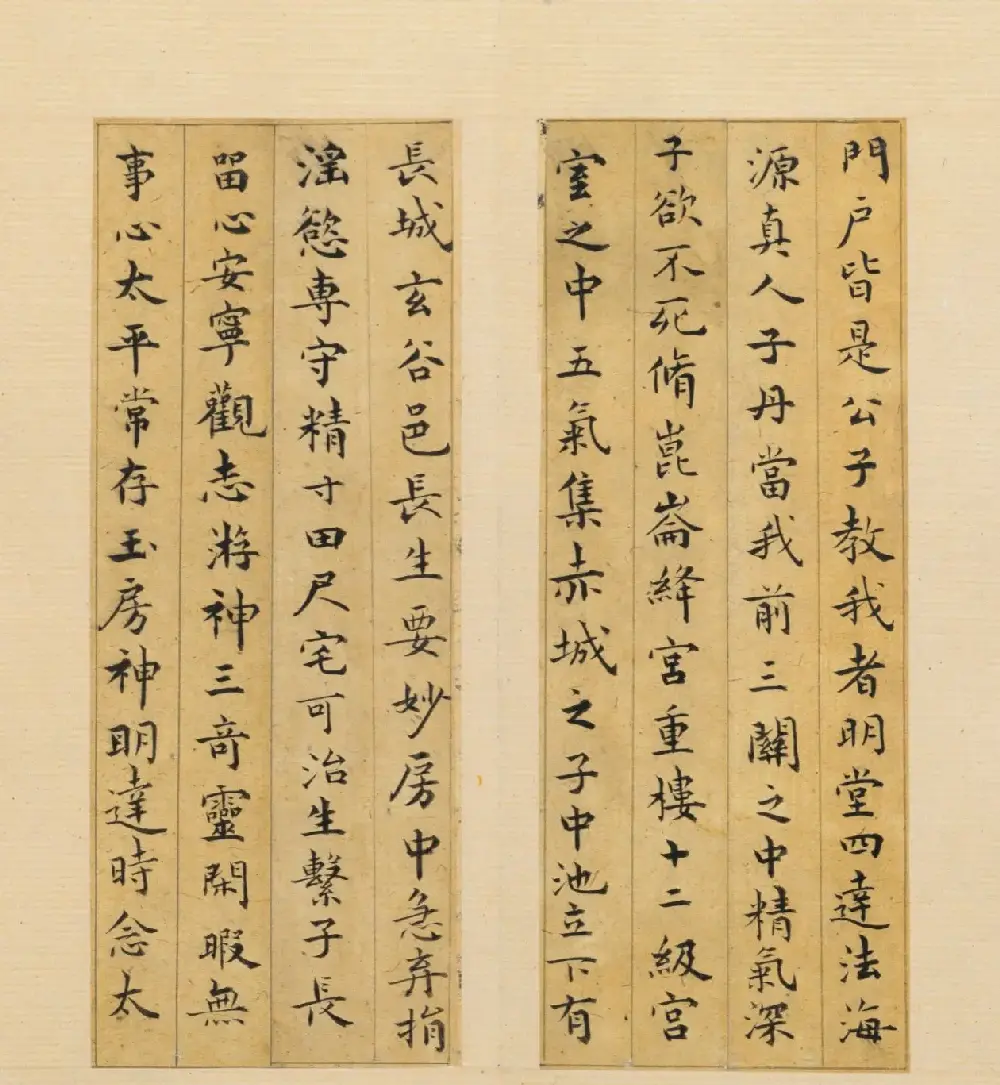 門户皆是公子教我者明堂四達法海
源真人子丹當我前三關之中精氣深
子欲不死脩崑崙絳宮重樓十二級宮
室之中五氣集赤城之子中池立下有
長城玄谷邑長生要妙房中急弃捐
淫慾専守精寸田尺宅可治生繫子長
留心安寧觀志游神三奇靈閑暇無
事心太平常存玉房神明達時念太